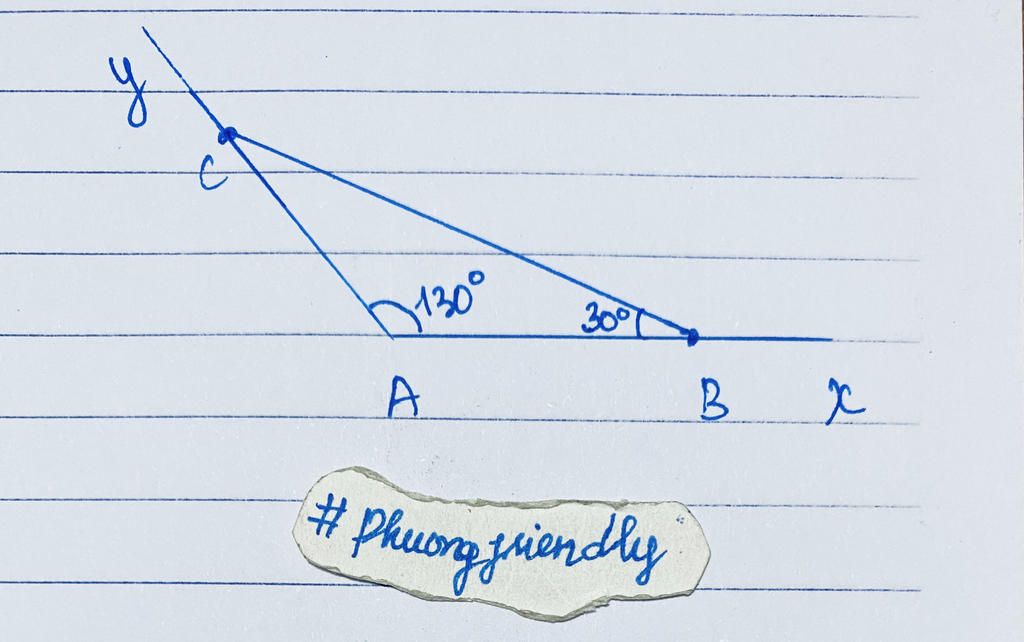 y
C
130°
30°
A B x
# Phuongfriendly